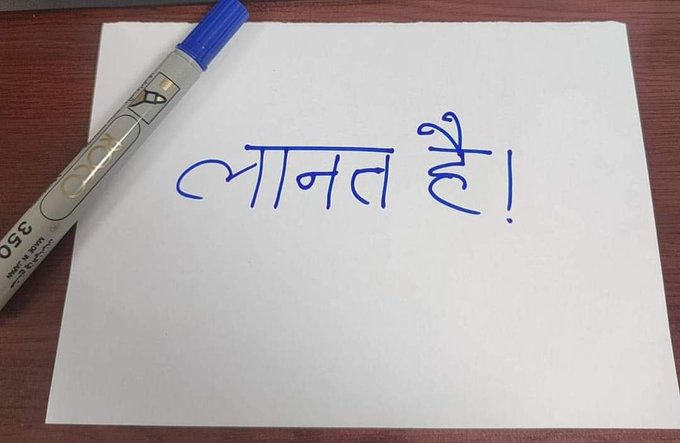 लानत है!
ROCO
350
MADE IN JAPAN